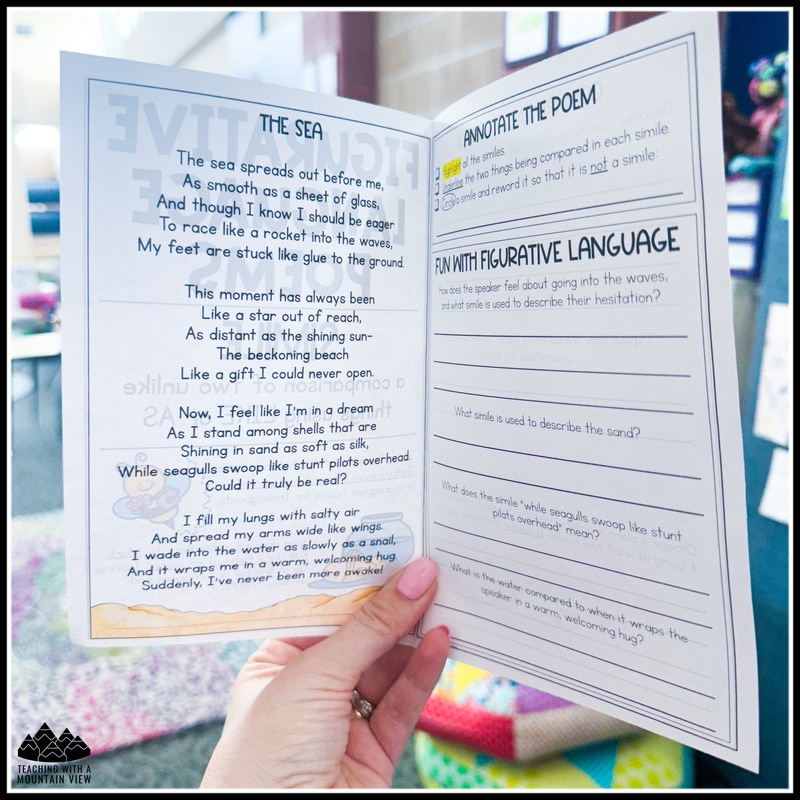 THE SEA
The sea spreads out before me,
As smooth as a sheet of glass,
And though I know I should be eager
To race like a rocket into the waves,
My feet are stuck like glue to the ground.
This moment has always been
Like a star out of reach,
As distant as the shining sun-
The beckoning beach
Like a gift I could never open.
Now, I feel like I'm in a dream
As I stand among shells that are
Shining in sand as soft as silk,
While seagulls swoop like stunt pilots overhead.
Could it truly be real?
I fill my lungs with salty air
And spread my arms wide like wings.
I wade into the water as slowly as a snail,
And it wraps me in a warm, welcoming hug.
Suddenly, I've never been more awake!
ANNOTATE THE POEM
Highlight all the similes.
Underline the two things being compared in each simile.
Circle a simile and reword it so that it is not a simile.
FUN WITH FIGURATIVE LANGUAGE
How does the speaker feel about going into the waves,
and what simile is used to describe their hesitation?
What simile is used to describe the sand?
What does the simile "while seagulls swoop like stunt
pilots overhead" mean?
What is the water compared to when it wraps the
speaker in a warm, welcoming hug?
TEACHING WITH A
MOUNTAIN VIEW